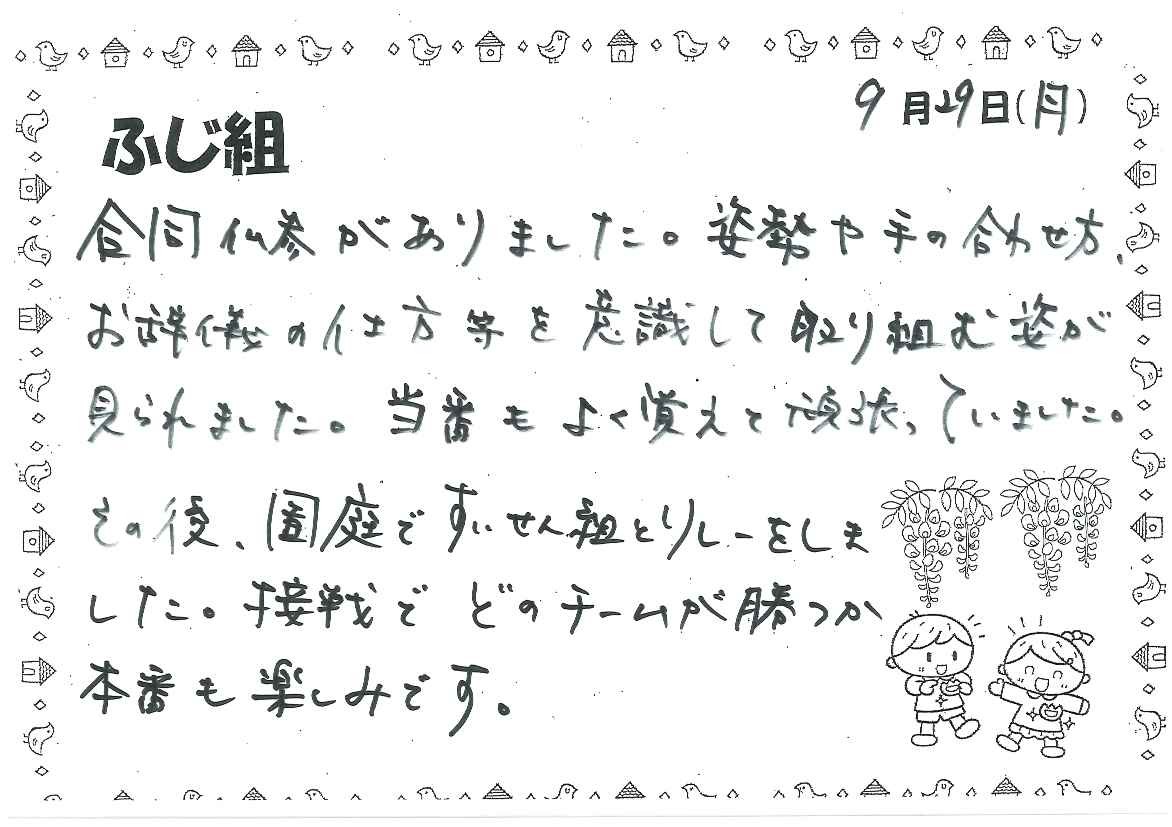 9月29日(月)
ふじ組
合同仏参がありました。姿勢や手の合わせ方、
お辞儀の仕方等を意識して取り組む姿が
見られました。当番もよく覚えて頑張っていました。
その後、園庭ですいせん組とリレーをしま
した。接戦でどのチームが勝つか
本番も楽しみです。